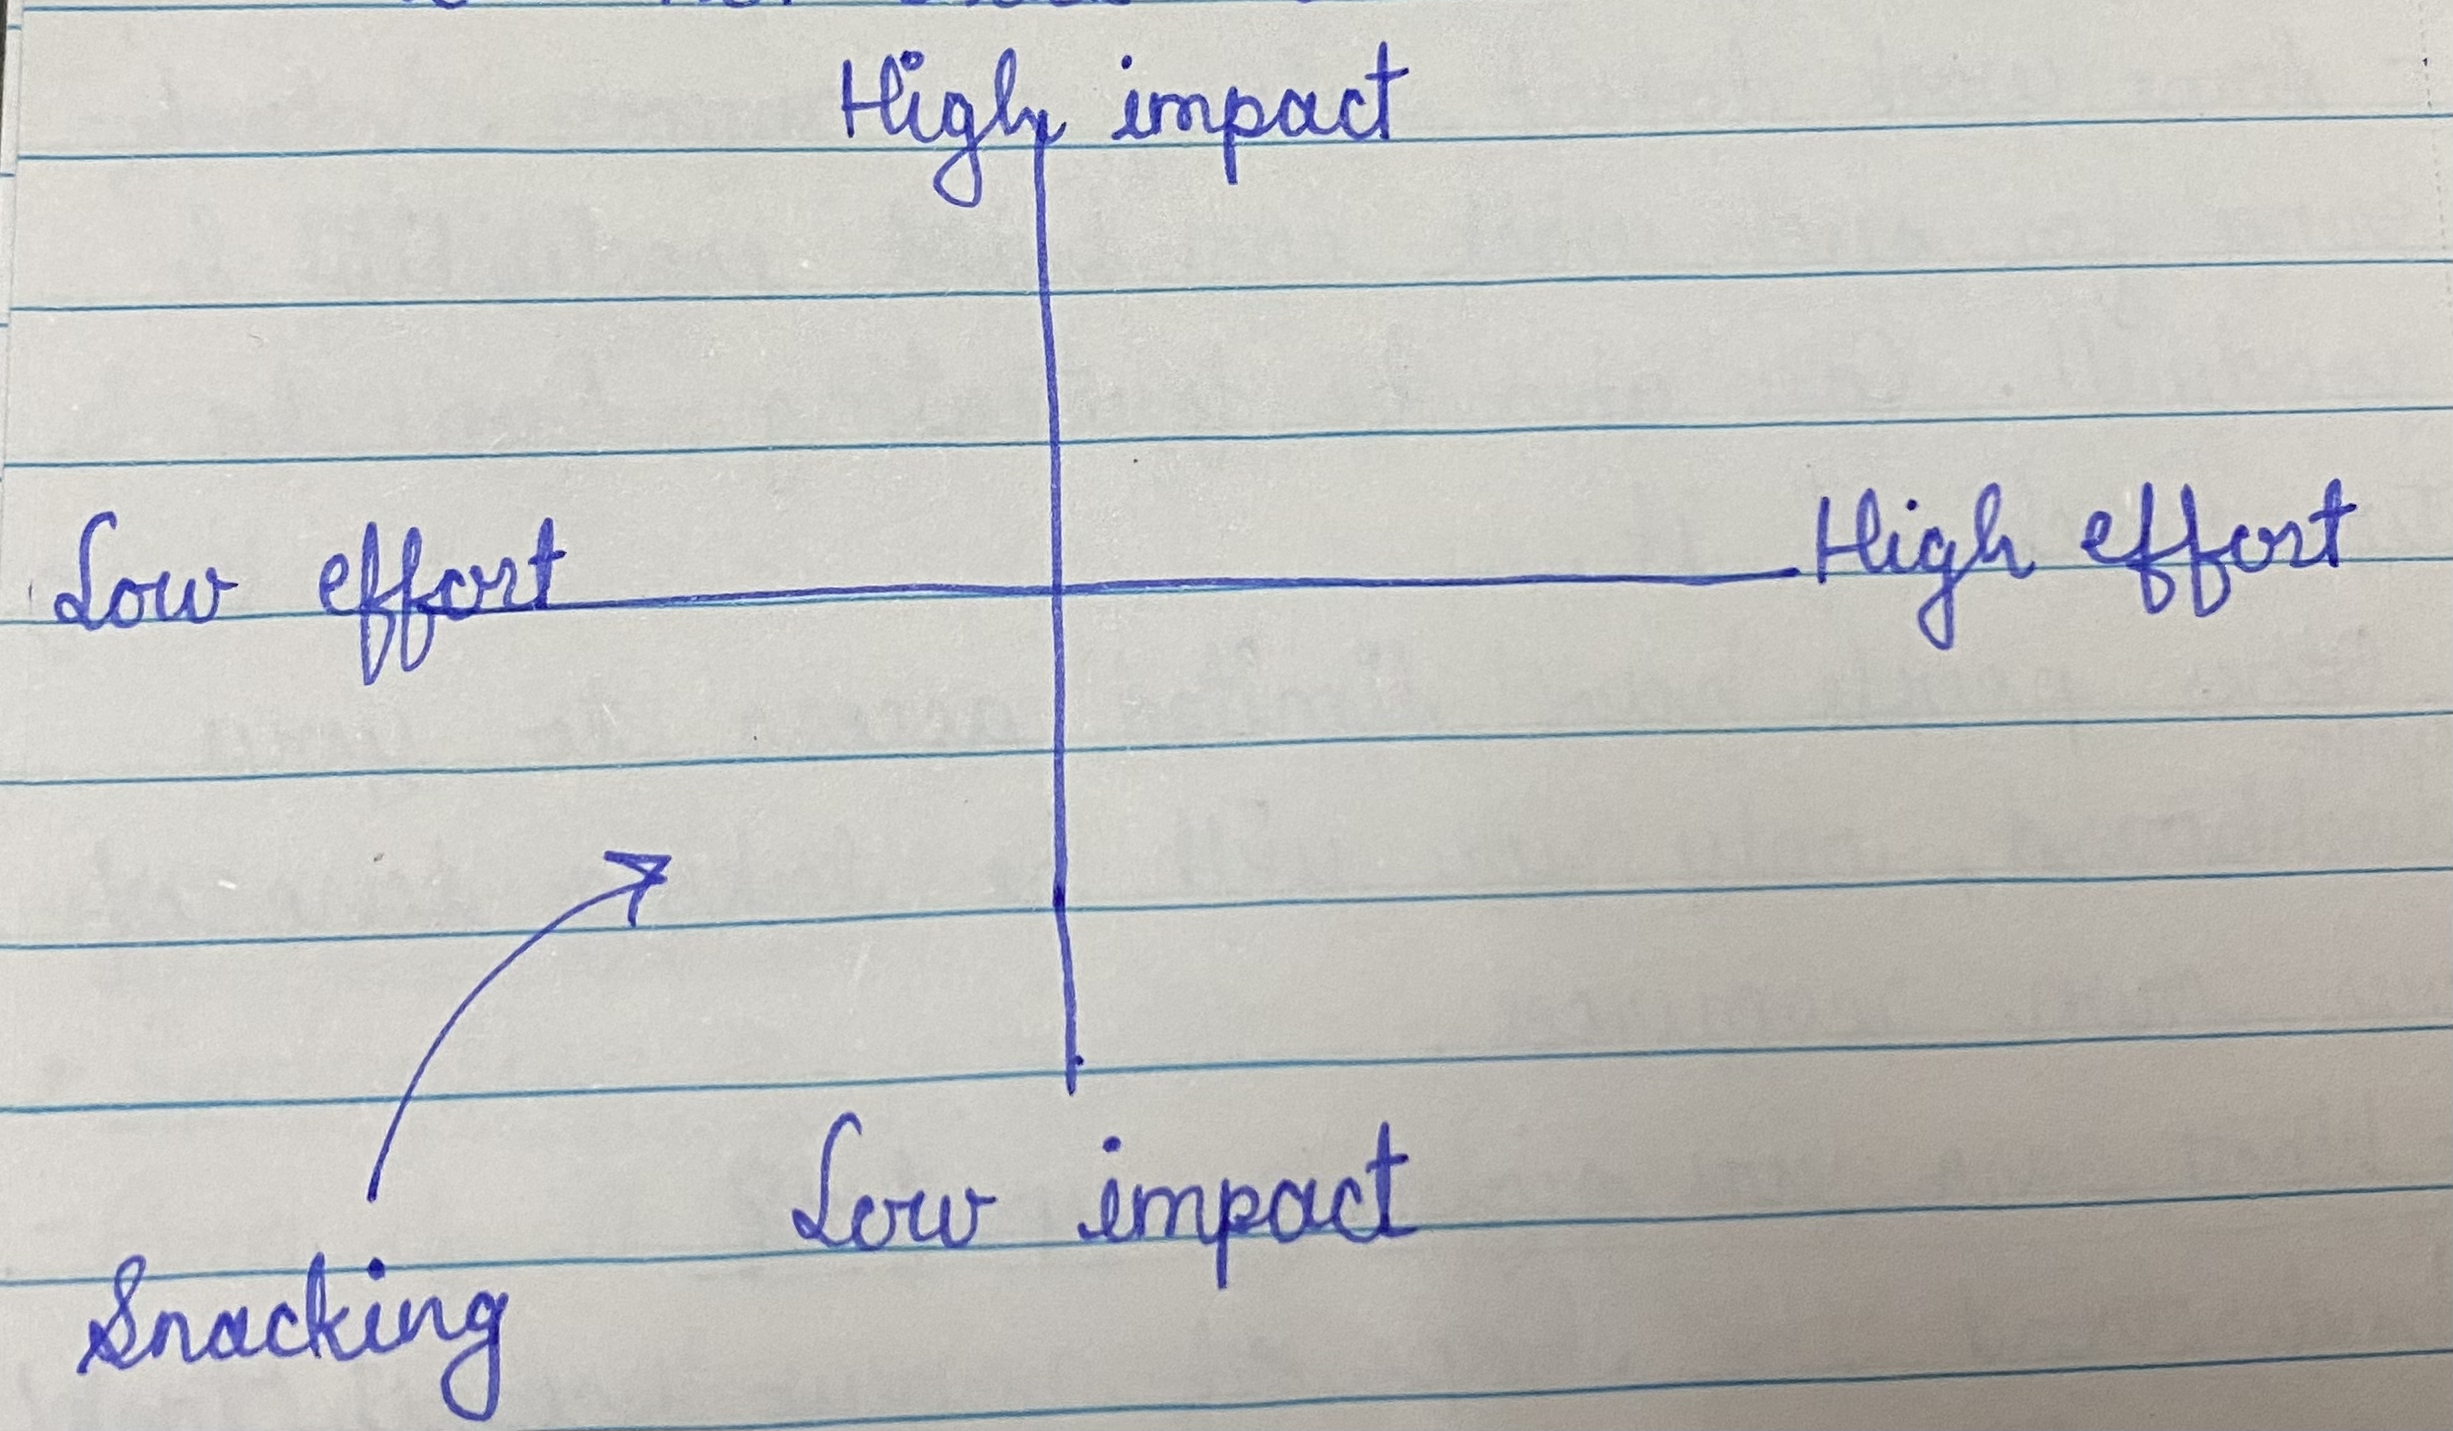 High impact
Low effort
High effort
Low impact
Snacking